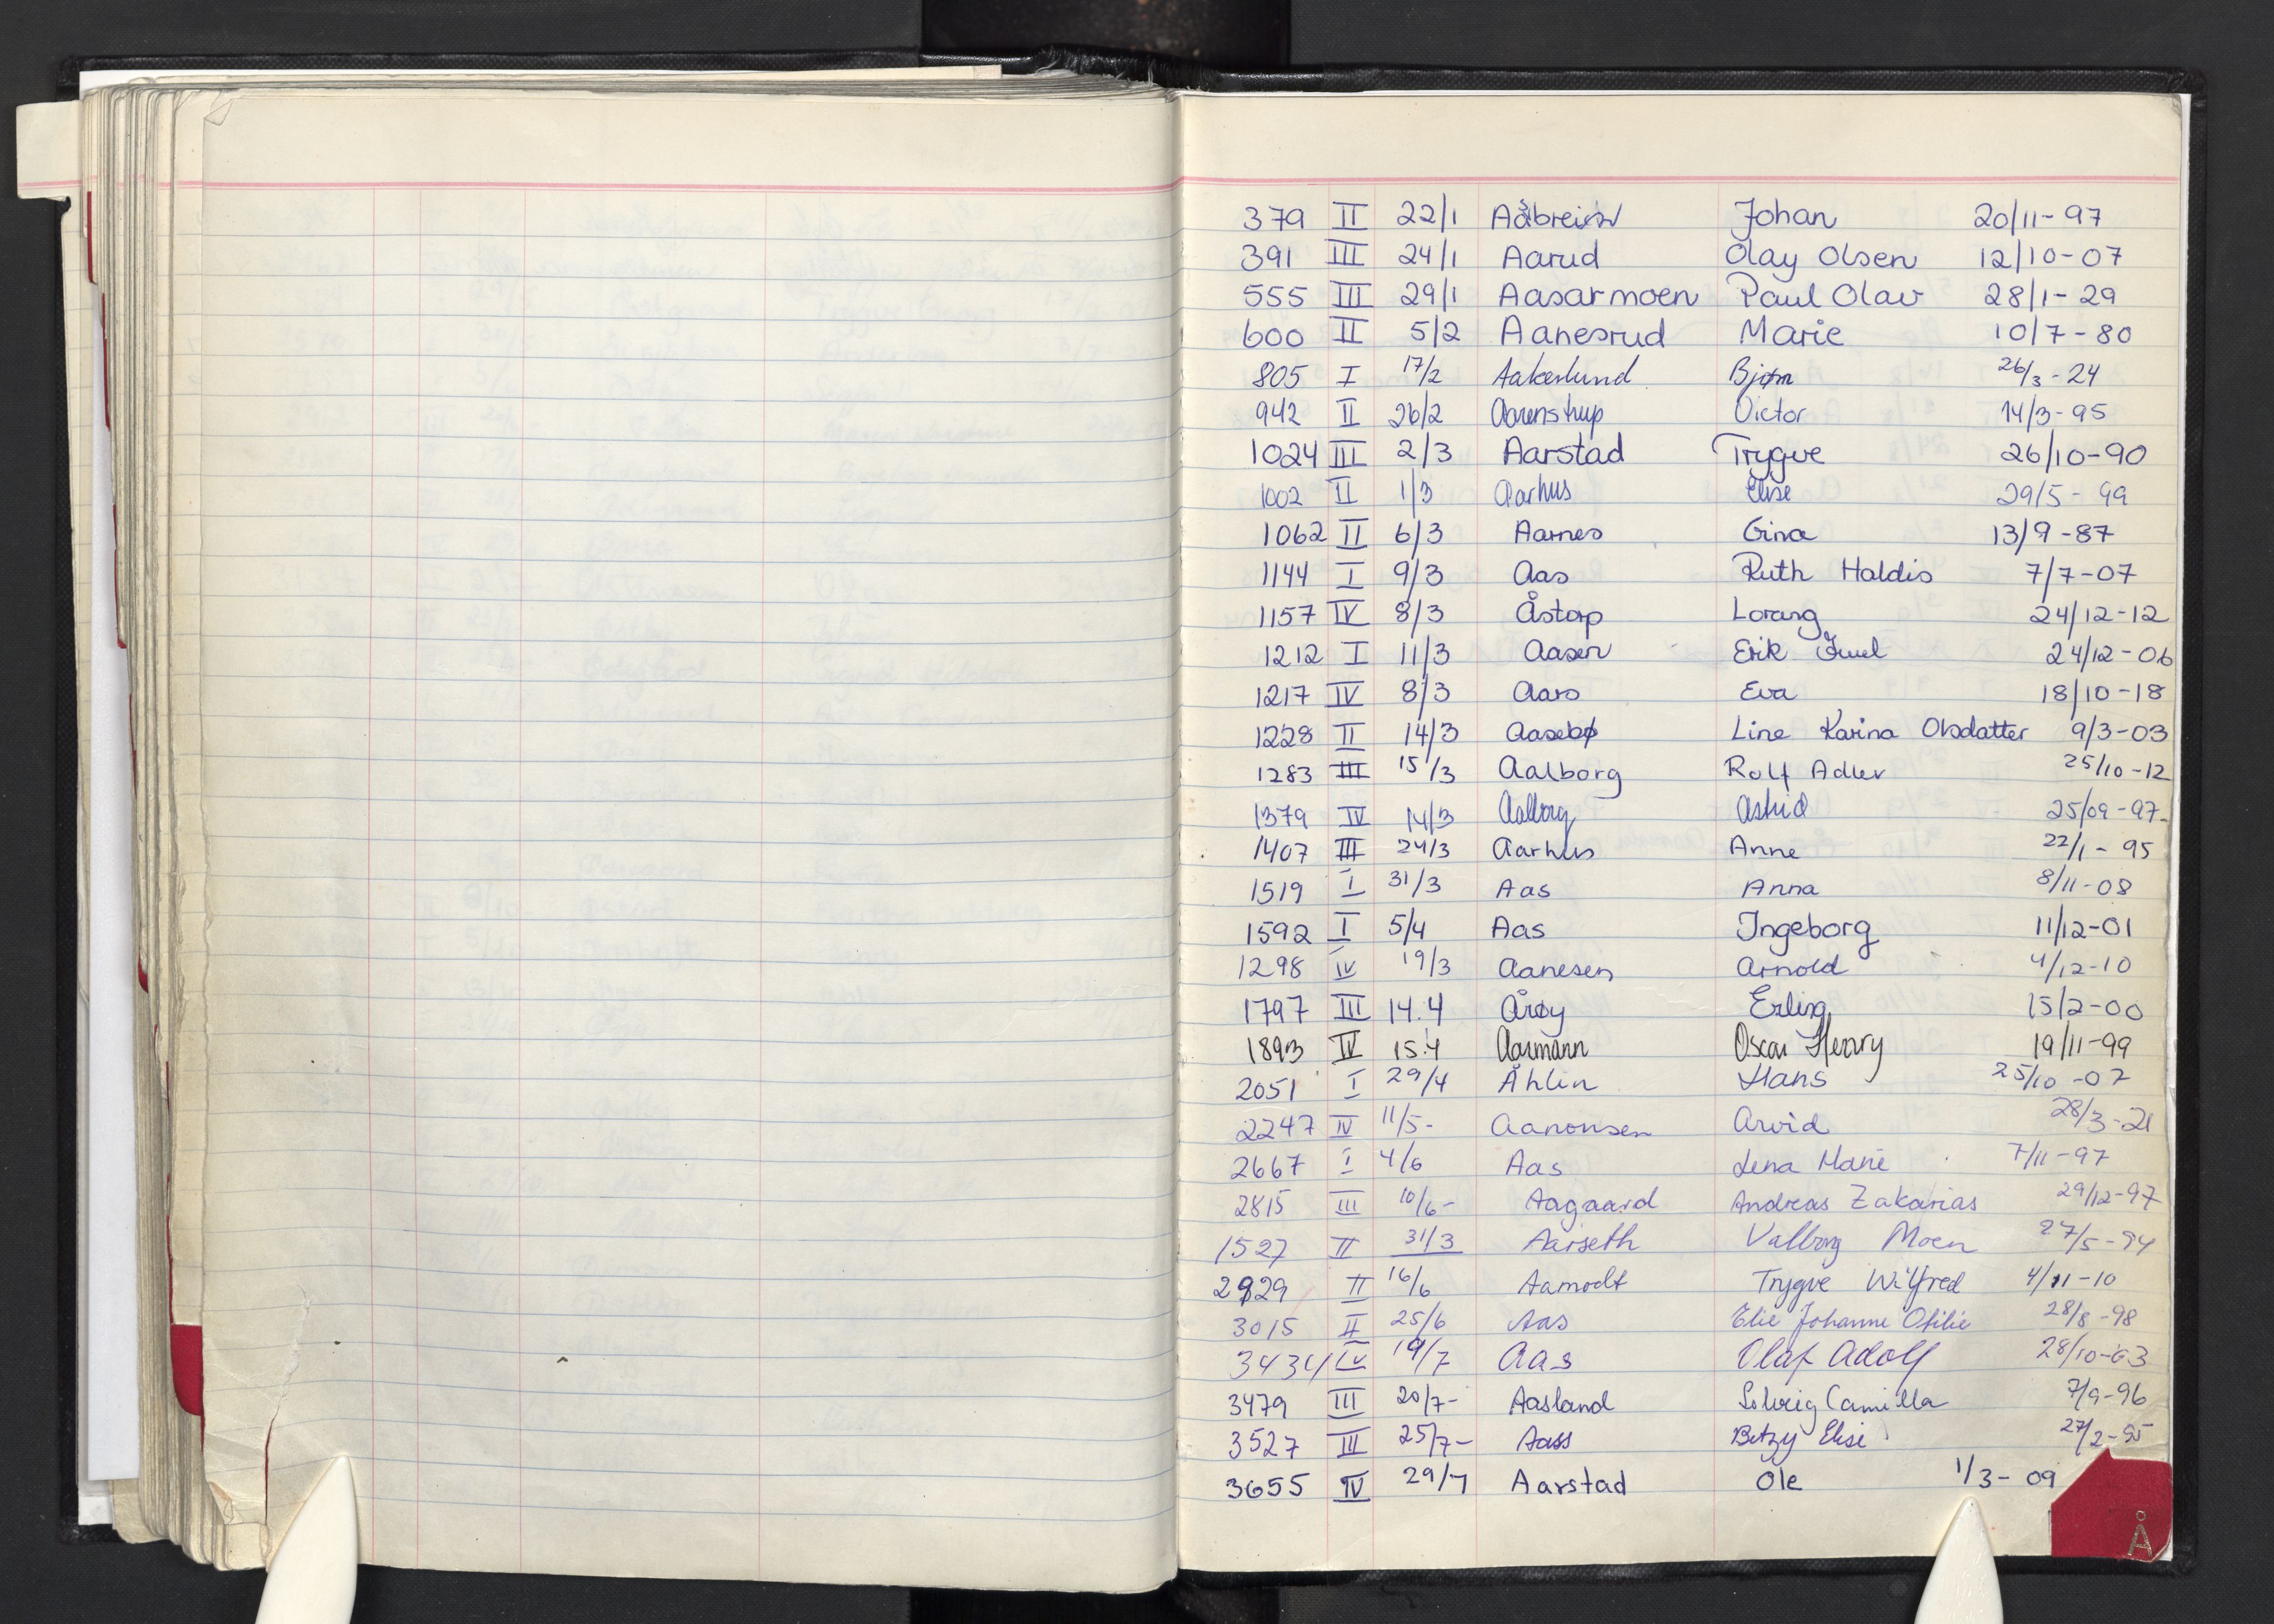 379 II 22/1 Aåbreivn Johan 20/11-97
391 III 24/1 Aarud Olav Olsen 12/10-07
555 III 29/1 Aasarmoen Paul Olav 28/1-29
600 II 5/2 Aanesrud Marie 10/7-80
805 I 17/2 Aakerlund Bjørn 26/3-24
942 II 26/2 Aarenstrup Victor 14/3-95
1024 III 2/3 Aarstad Trygve 26/10-90
1002 II 1/3 Aarhus Elise 29/5-99
1062 II 6/3 Aarnes Gina 13/9-87
1144 I 9/3 Aas Ruth Haldis 7/7-07
1157 IV 8/3 Åstorp Lorang 24/12-12
1212 I 11/3 Aasen Erik Juul 24/12-06
1217 IV 8/3 Aars Eva 18/10-18
1228 II 14/3 Aasebø Line Karina Olsdatter 9/3-03
1283 III 15/3 Aalborg Rolf Adler 25/10-12
1379 IV 14/3 Aalborg Astrid 25/09-97
1407 III 24/3 Aarhus Anne 22/1-95
1519 I 31/3 Aas Anna 8/11-08
1592 I 5/4 Aas Ingeborg 11/12-01
1298 IV 19/3 Aanesen Arnold 4/12-10
1797 III 14.4 Årøy Erling 15/2-00
1893 IV 15.4 Aasmann Oscar Henry 19/11-99
2051 I 29/4 Åhlin Hans 25/10-07
2247 IV 11/5- Aanonsen Arvid 28/3-21
2667 I 4/6 Aas Lena Marie 7/11-97
2815 III 10/6- Aagaard Andreas Zakarias 29/12-97
1527 II 31/3 Aarseth Valborg Moen 27/5-94
2929 II 16/6 Aamodt Trygve Wilfred 4/11-10
3015 II 25/6 Aas Elie Johanne Otilie 28/8-98
3434 IV 19/7 Aas Olaf Adolf 28/10-03
3479 III 20/7- Aasland Solveig Camilla 7/9-96
3527 III 25/7- Aass Betzy Elise 27/2-95
3655 IV 29/7 Aarstad Ole 1/3-09
Å